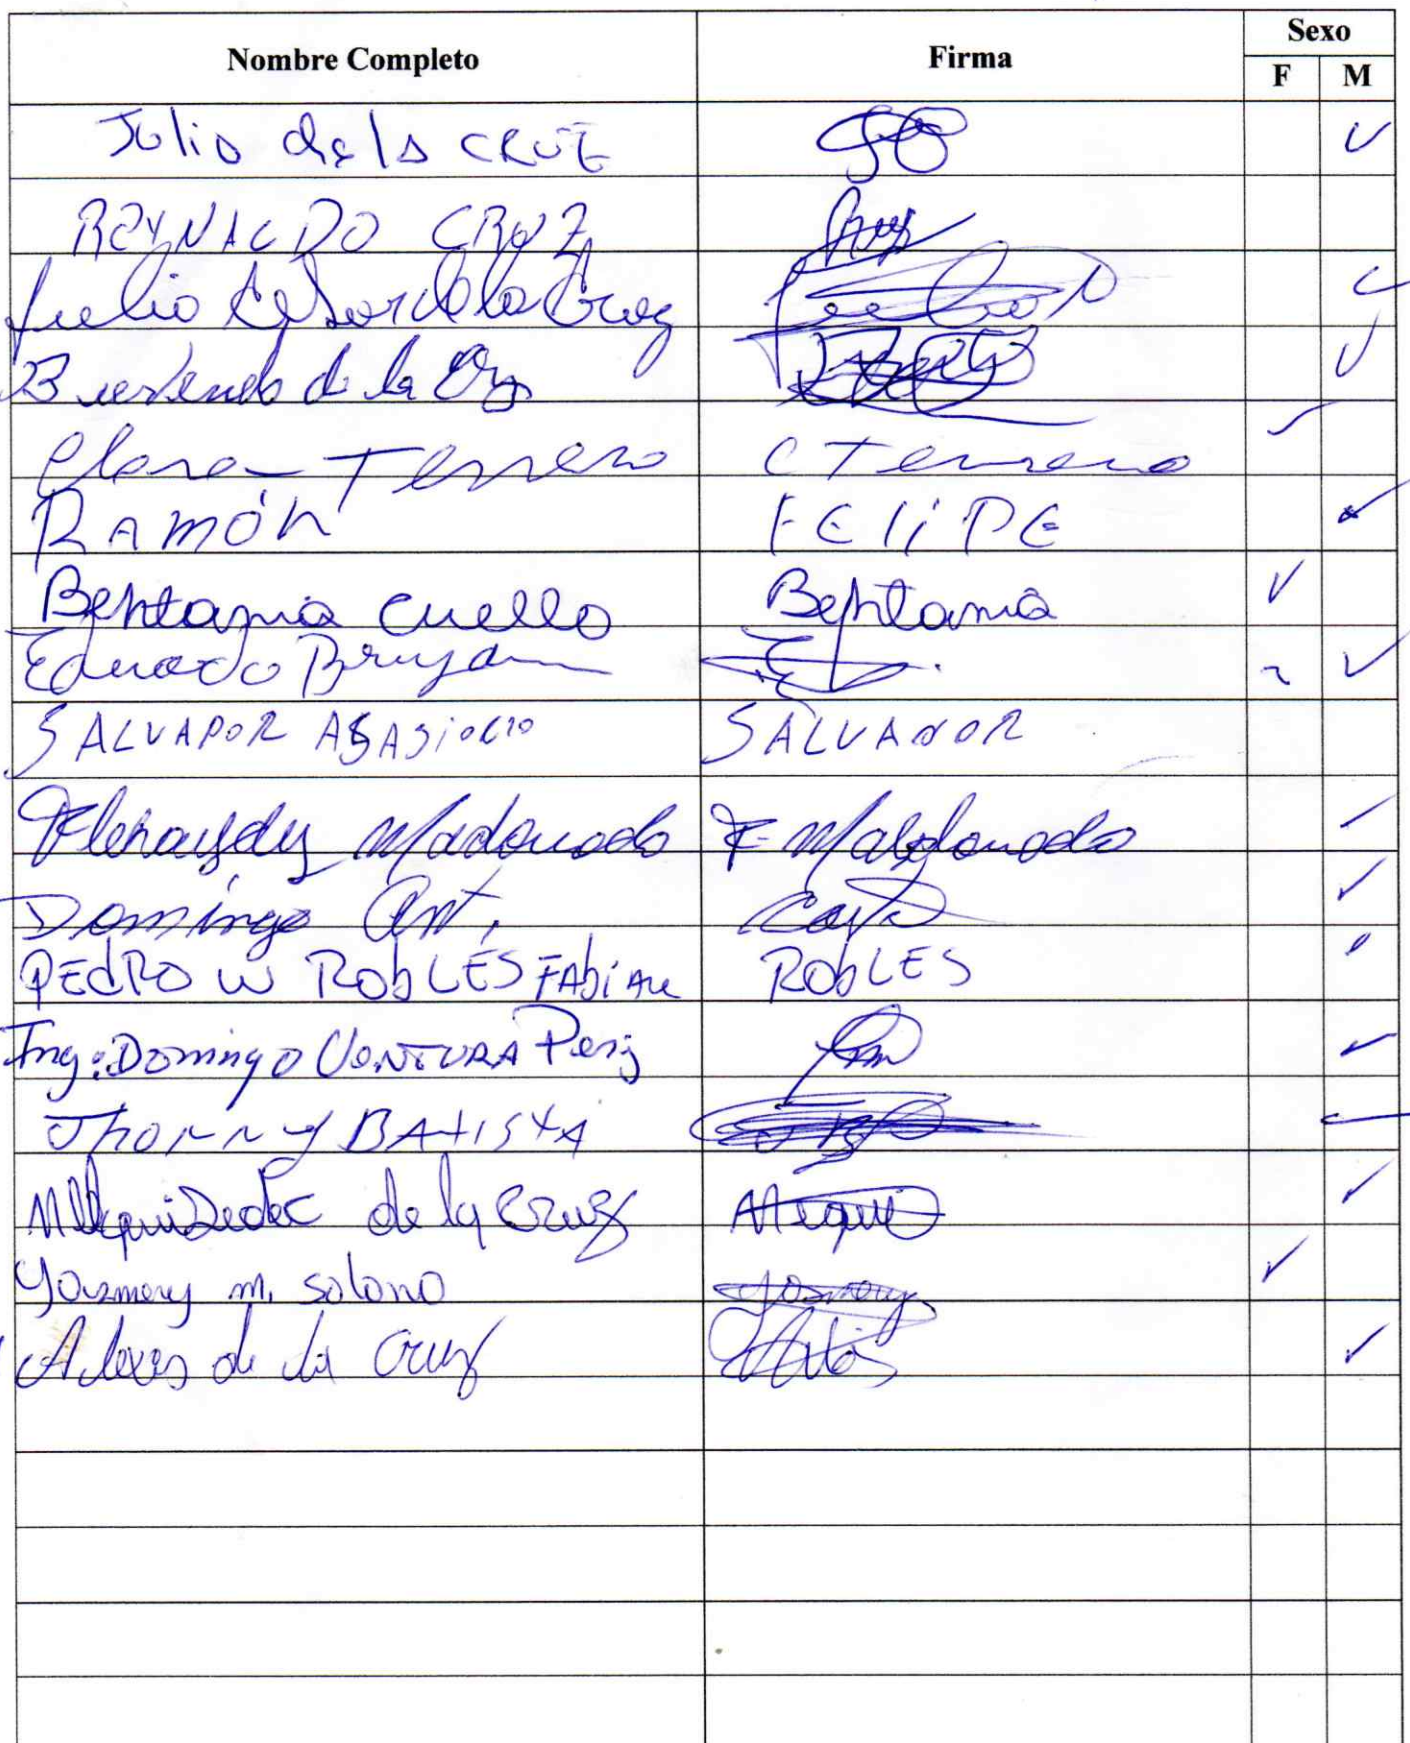 Nombre Completo Firma Sexo
F M
Julio de la CRUZ
REYNALDO CRUZ Cruz
Julio Cesar de la Cruz
de la Cruz
Clara Terrero C Terrero
RAMÓN FELIPE
Behtania Cuello Behtania
Eduardo Brujan
SALVADOR SALVADOR
Maldonado F. Maldonado
Domingo Ant.
PEDRO W ROBLES FABIAN ROBLES
Ing: Domingo VENTURA Perez
JHONNY BATISTA
Melquisedec de la Cruz Mequi
Yosmery m. Solano Yosmery
Alexis de la Cruz